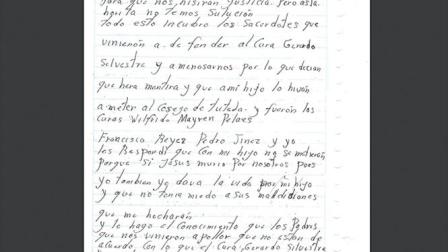 para que nos hisiran justicia pero asta
horita no temos Solución
Todo esto incudro los Sacerdotes que
vinieron a defender al Cura Gerardo
Silvestre y amenosarnos por lo que decian
que hera mentira y que ami hijo lo hivan
a meter al Cosego de tutela y fueron los
Curas Wilfrido Mayren Pelaes
Francisco Reyes Pedro Jinez y yo
los Respordi que con mi hijo no se metieran
porque si Jesus murio por nosotros pues
yo tambien yo dava la vida por mi hijo
y que no tenia miedo a sus maldiciones
que me hecharan
y le hago el Conocimiento que los Padres
que nos vinieron apollar que no estan de
acuerdo, con lo que el Cura Gerardo Silvestre